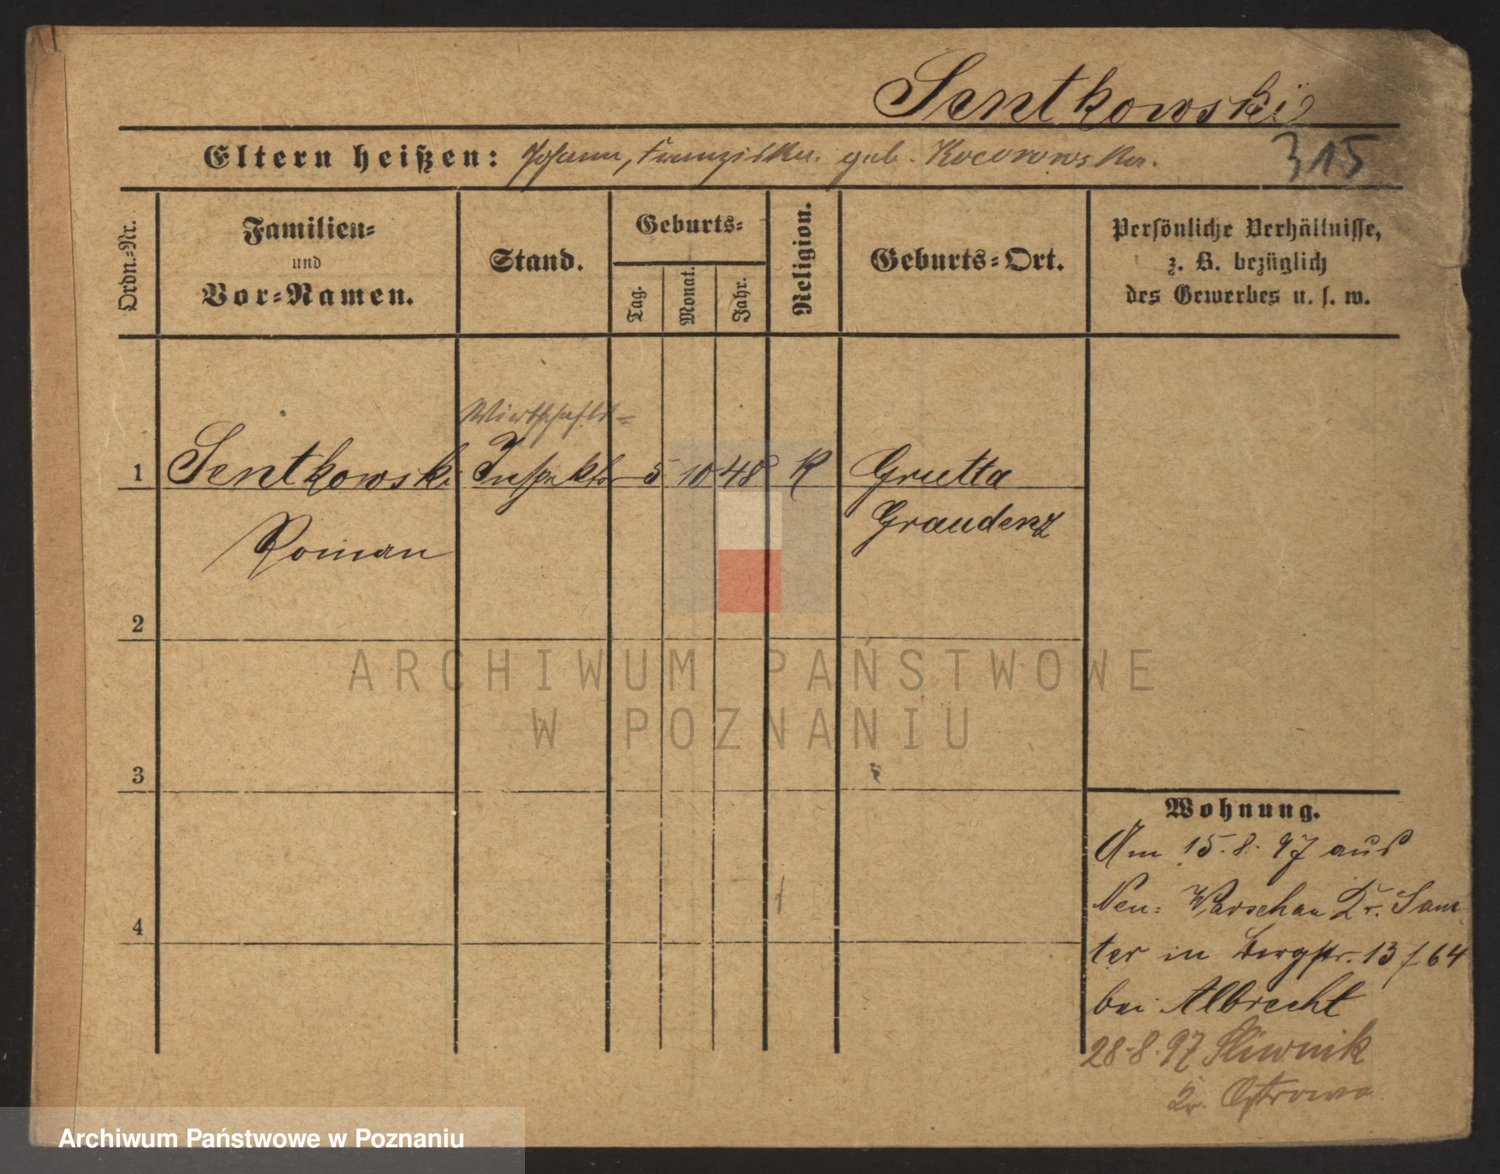 Sentkowski
Eltern heißen: Johann, Franziska geb. Kocorowska.
315
Ordn.-Nr.
Familien-
und
Vor-Namen.
Stand.
Geburts-
Tag.
Monat.
Jahr.
Religion.
Geburts-Ort.
Persönliche Verhältnisse,
z. B. bezüglich
des Gewerbes u. s. w.
Wirtschafts-
1 Sentkowski Inspektor 5 10 48 K Grutta
Roman Graudenz
2
3
4
Wohnung.
Am 15.8.97 aus
Neu-Warschau Kr. Sam
ter in Bergstr. 13/64
bei Albrecht
28.8.97 Sliwnik
Kr. Ostrowo
ARCHIWUM PAŃSTWOWE
W POZNANIU
Archiwum Państwowe w Poznaniu